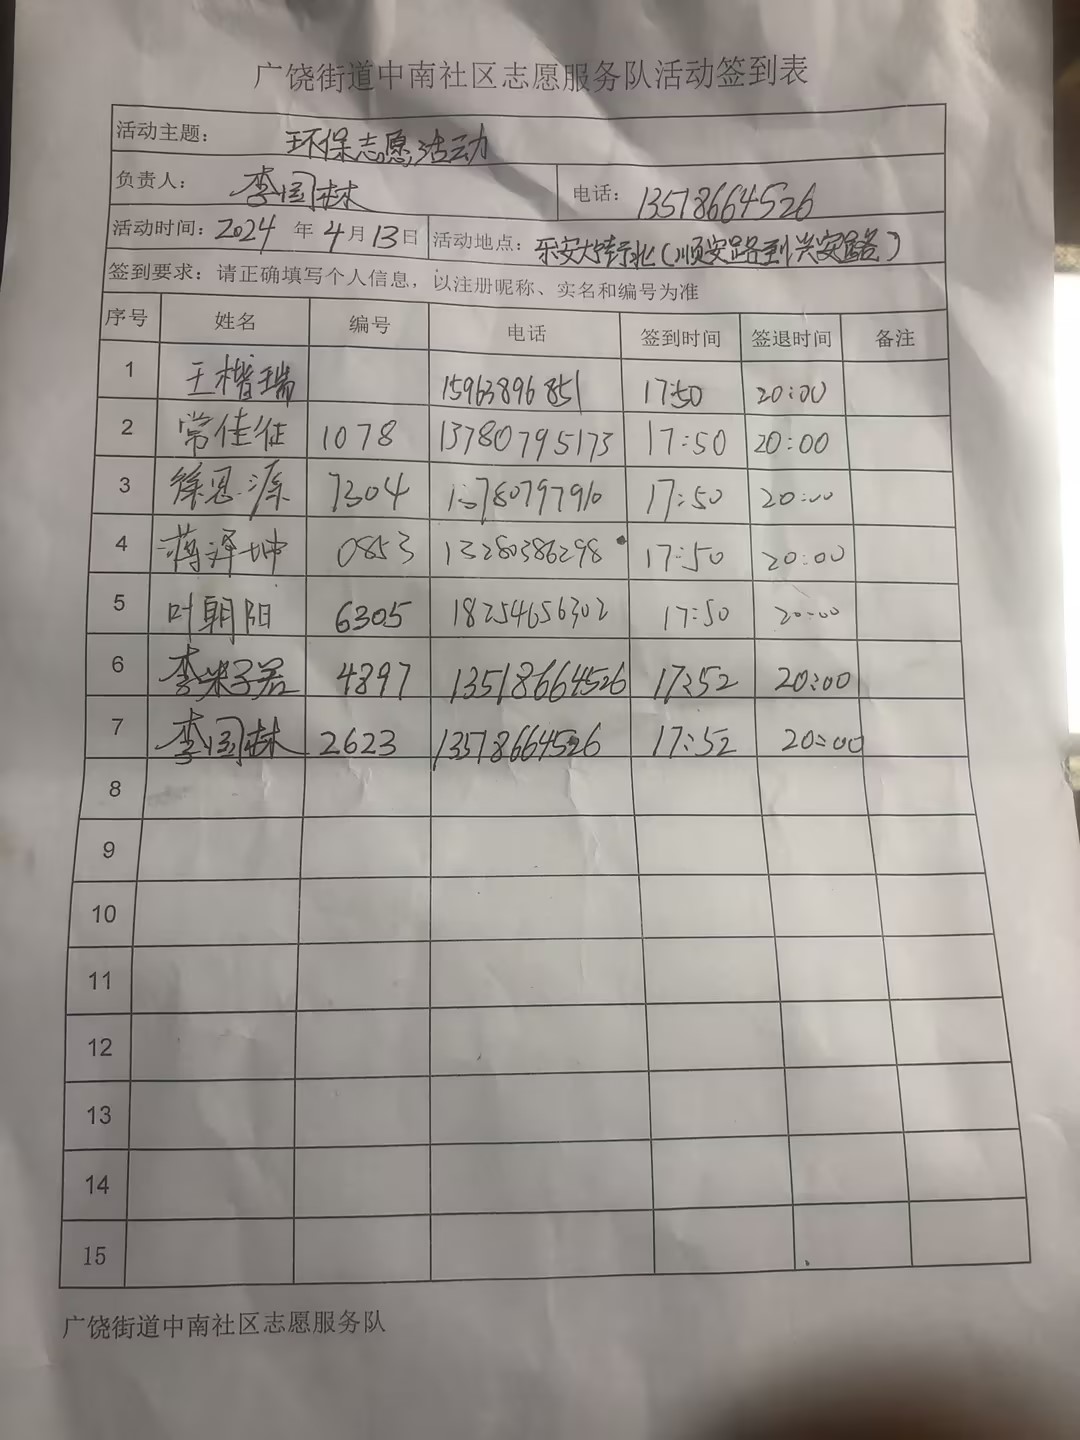 广饶街道中南社区志愿服务队活动签到表
活动主题： 环保志愿活动
负责人： 李国林 电话： 13518664526
活动时间：2024 年 4 月 13 日 活动地点：乐安大街行北（顺安路到兴安路）
签到要求：请正确填写个人信息，以注册昵称、实名和编号为准
序号 姓名 编号 电话 签到时间 签退时间 备注
1 王楷瑞 15963896851 17:50 20:00
2 常佳征 1078 13780795173 17:50 20:00
3 徐恩源 7304 13780797910 17:50 20:00
4 蒋泽坤 0853 13280386298 17:50 20:00
5 叶朝阳 6305 18254656302 17:50 20:00
6 李 4897 13518664526 17:52 20:00
7 李国林 2623 13518664526 17:52 20:00
8
9
10
11
12
13
14
15
广饶街道中南社区志愿服务队